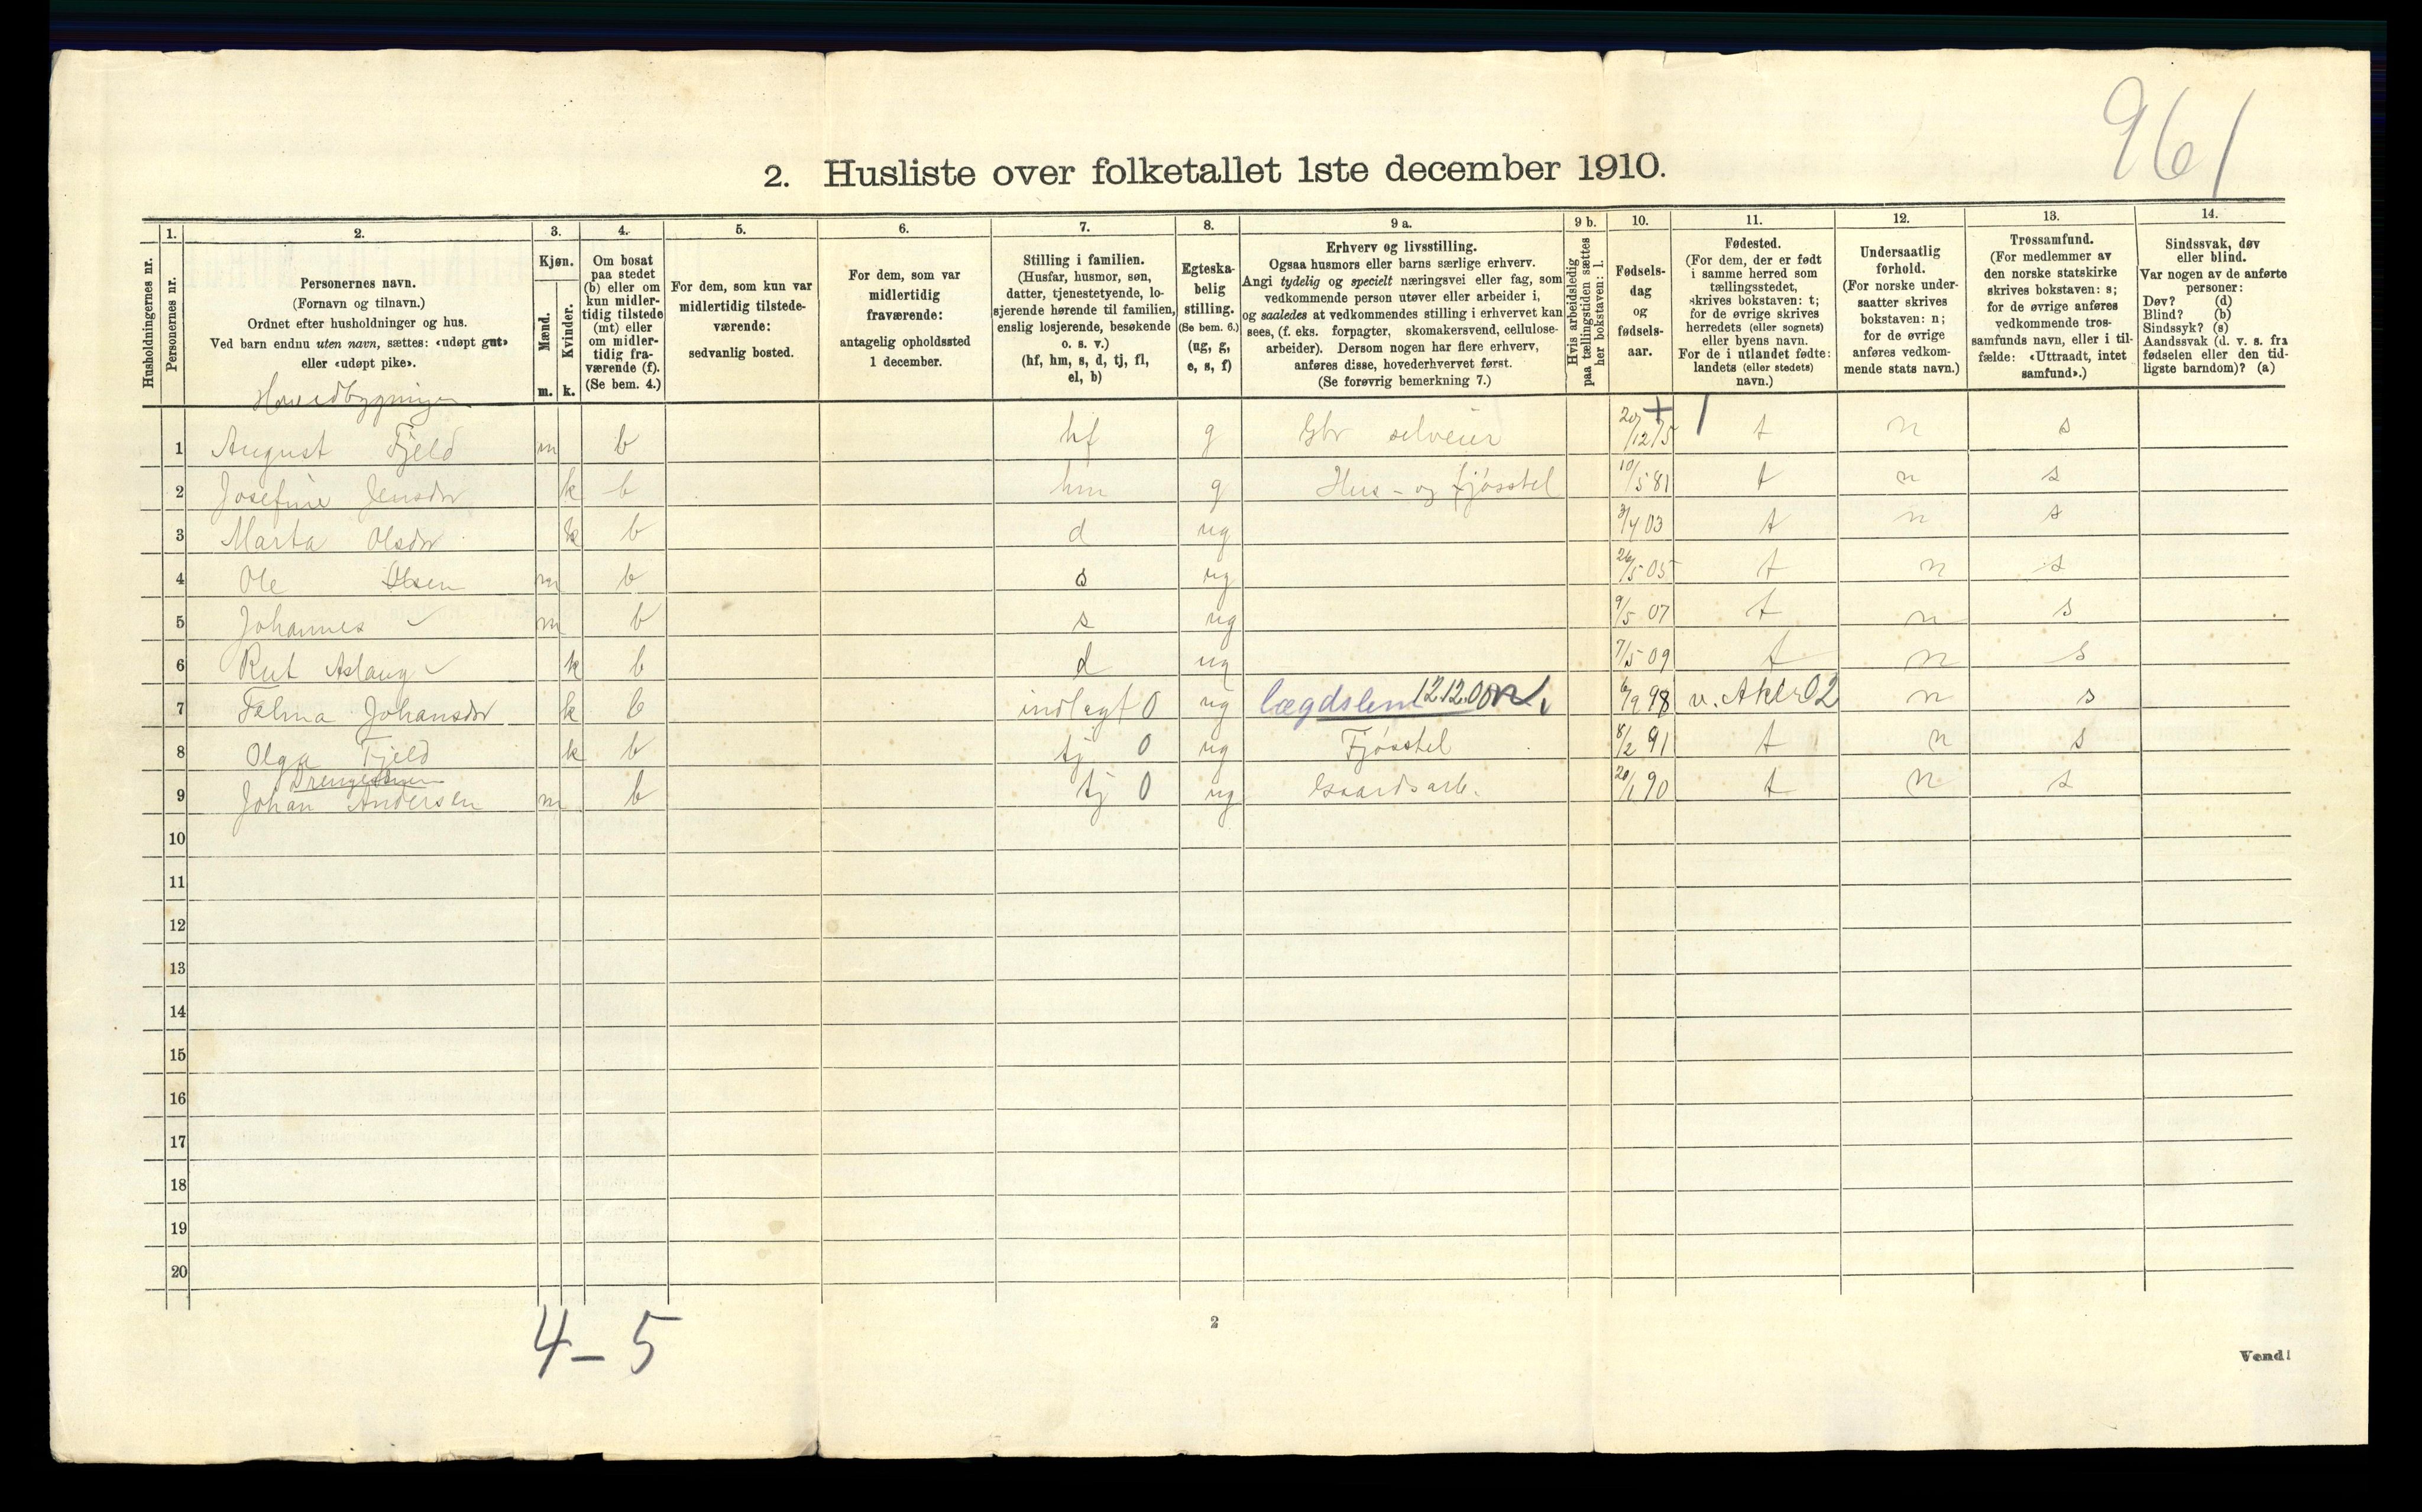 961
2. Husliste over folketallet 1ste december 1910.
Husholdningernes nr.
1.
Personernes nr.
2.
Personernes navn.
(Fornavn og tilnavn.)
Ordnet efter husholdninger og hus.
Ved barn endnu uten navn, sættes: «udøpt gut»
eller «udøpt pike».
3.
Kjøn.
Mænd.
m.
Kvinder.
k.
4.
Om bosat
paa stedet
(b) eller om
kun midler-
tidig tilstede
(mt) eller
om midler-
tidig fra-
værende (f).
(Se bem. 4.)
5.
For dem, som kun var
midlertidig tilstede-
værende:
sedvanlig bosted.
6.
For dem, som var
midlertidig
fraværende:
antagelig opholdssted
1 december.
7.
Stilling i familien.
(Husfar, husmor, søn,
datter, tjenestetyende, lo-
sjerende hørende til familien,
enslig losjerende, besøkende
o. s. v.)
(hf, hm, s, d, tj, fl,
el, b)
8.
Egteska-
belig
stilling.
(Se bem. 6.)
(ug, g,
e, s, f)
9 a.
Erhverv og livsstilling.
Ogsaa husmors eller barns særlige erhverv.
Angi tydelig og specielt næringsvei eller fag, som
vedkommende person utøver eller arbeider i,
og saaledes at vedkommendes stilling i erhvervet kan
sees, (f. eks. forpagter, skomakersvend, cellulose-
arbeider). Dersom nogen har flere erhverv,
anføres disse, hovederhvervet først.
(Se forøvrig bemerkning 7.)
9 b.
Hvis arbeidsledig
paa tællingstiden sættes
her bokstaven: l.
10.
Fødsels-
dag
og
fødsels-
aar.
11.
Fødested.
(For dem, der er født
i samme herred som
tællingsstedet,
skrives bokstaven: t;
for de øvrige skrives
herredets (eller sognets)
eller byens navn.
For de i utlandet fødte:
landets (eller stedets)
navn.)
12.
Undersaatlig
forhold.
(For norske under-
saatter skrives
bokstaven: n;
for de øvrige
anføres vedkom-
mende stats navn.)
13.
Trossamfund.
(For medlemmer av
den norske statskirke
skrives bokstaven: s;
for de øvrige anføres
vedkommende tros-
samfunds navn, eller i til-
fælde: «Uttraadt, intet
samfund».)
14.
Sindssvak, døv
eller blind.
Var nogen av de anførte
personer:
Døv? (d)
Blind? (b)
Sindssyk? (s)
Aandssvak (d. v. s. fra
fødselen eller den tid-
ligste barndom)? (a)
Hovedbygningen
1 August Fjeld m b hf g Gbr selveier 20/12 75 t n s
2 Josefine Jensdtr k b hm g Hus- og fjøsstel 10/5 81 t n s
3 Marta Olsdtr k b d ug 3/4 03 t n s
4 Ole Olsen m b s ug 26/5 05 t n s
5 Johannes ✓ m b s ug 9/5 07 t n s
6 Rut Aslaug ✓ k b d ug 7/5 09 t n s
7 Johansdtr k b indlagt 0 ug lægdslem 12.12.00 6/9 98 v. Aker 02 n s
8 Olga Fjeld k b tj 0 ug Fjøsstel 8/2 91 t n s
Drengestuen
9 Johan Andersen m b tj 0 ug Gaardsarb. 20/1 90 t n s
10
11
12
13
14
15
16
17
18
19
20
4 - 5
2
Vend!